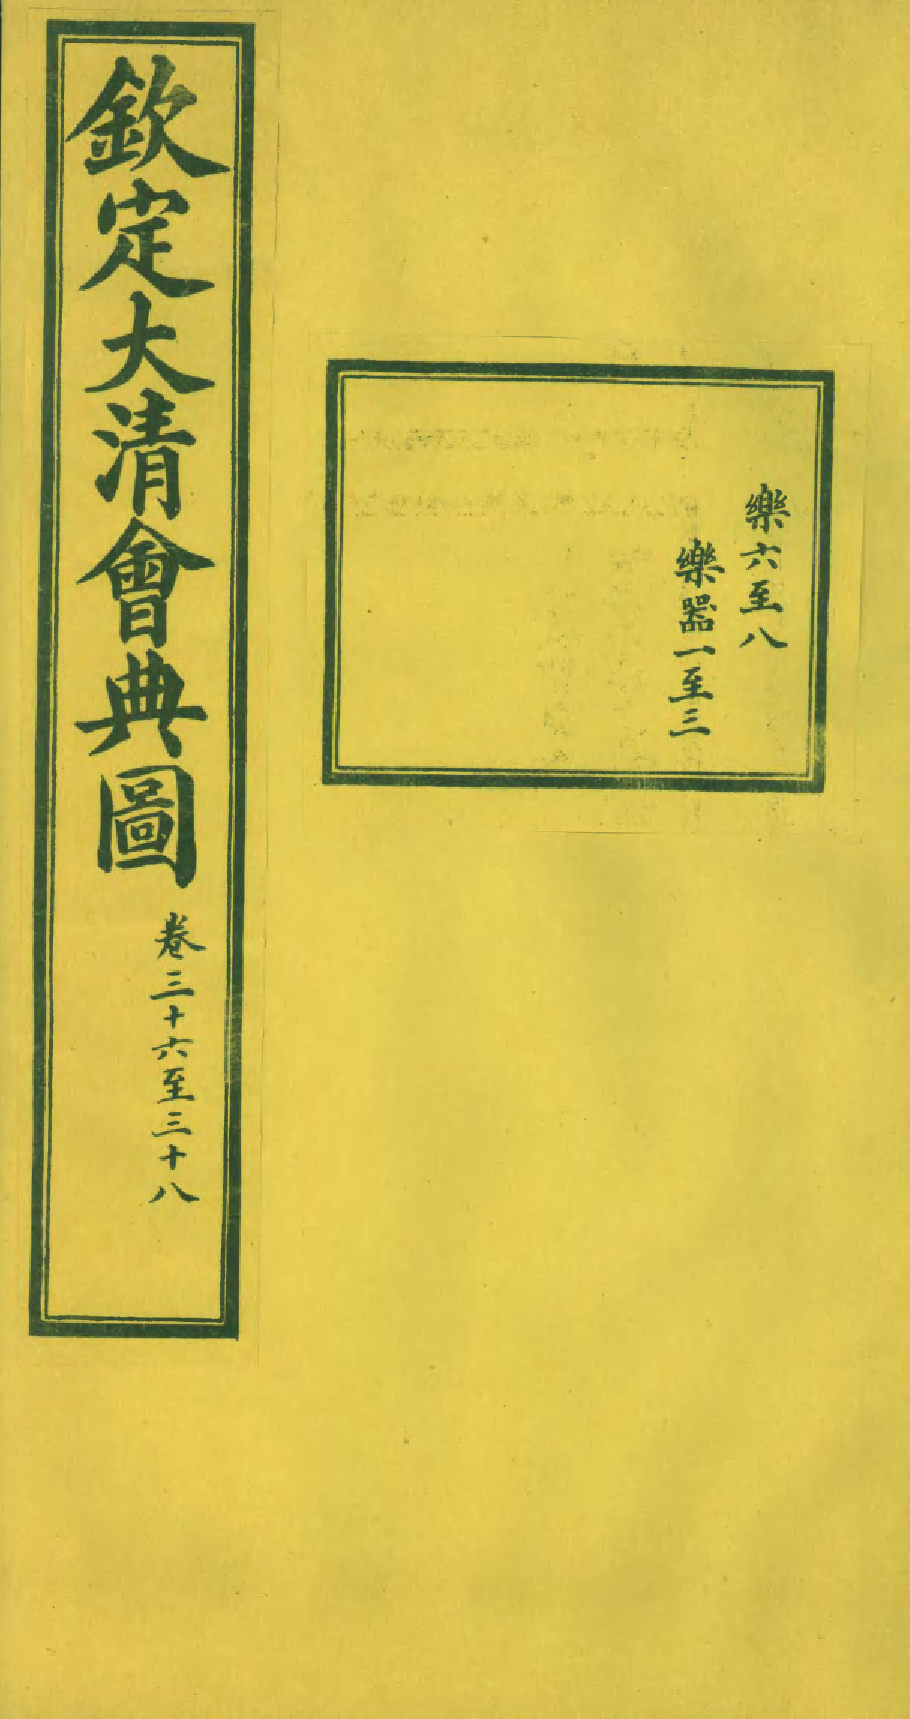 欽定大清會典圖
卷三十六至三十八
樂六至八
樂器一至三